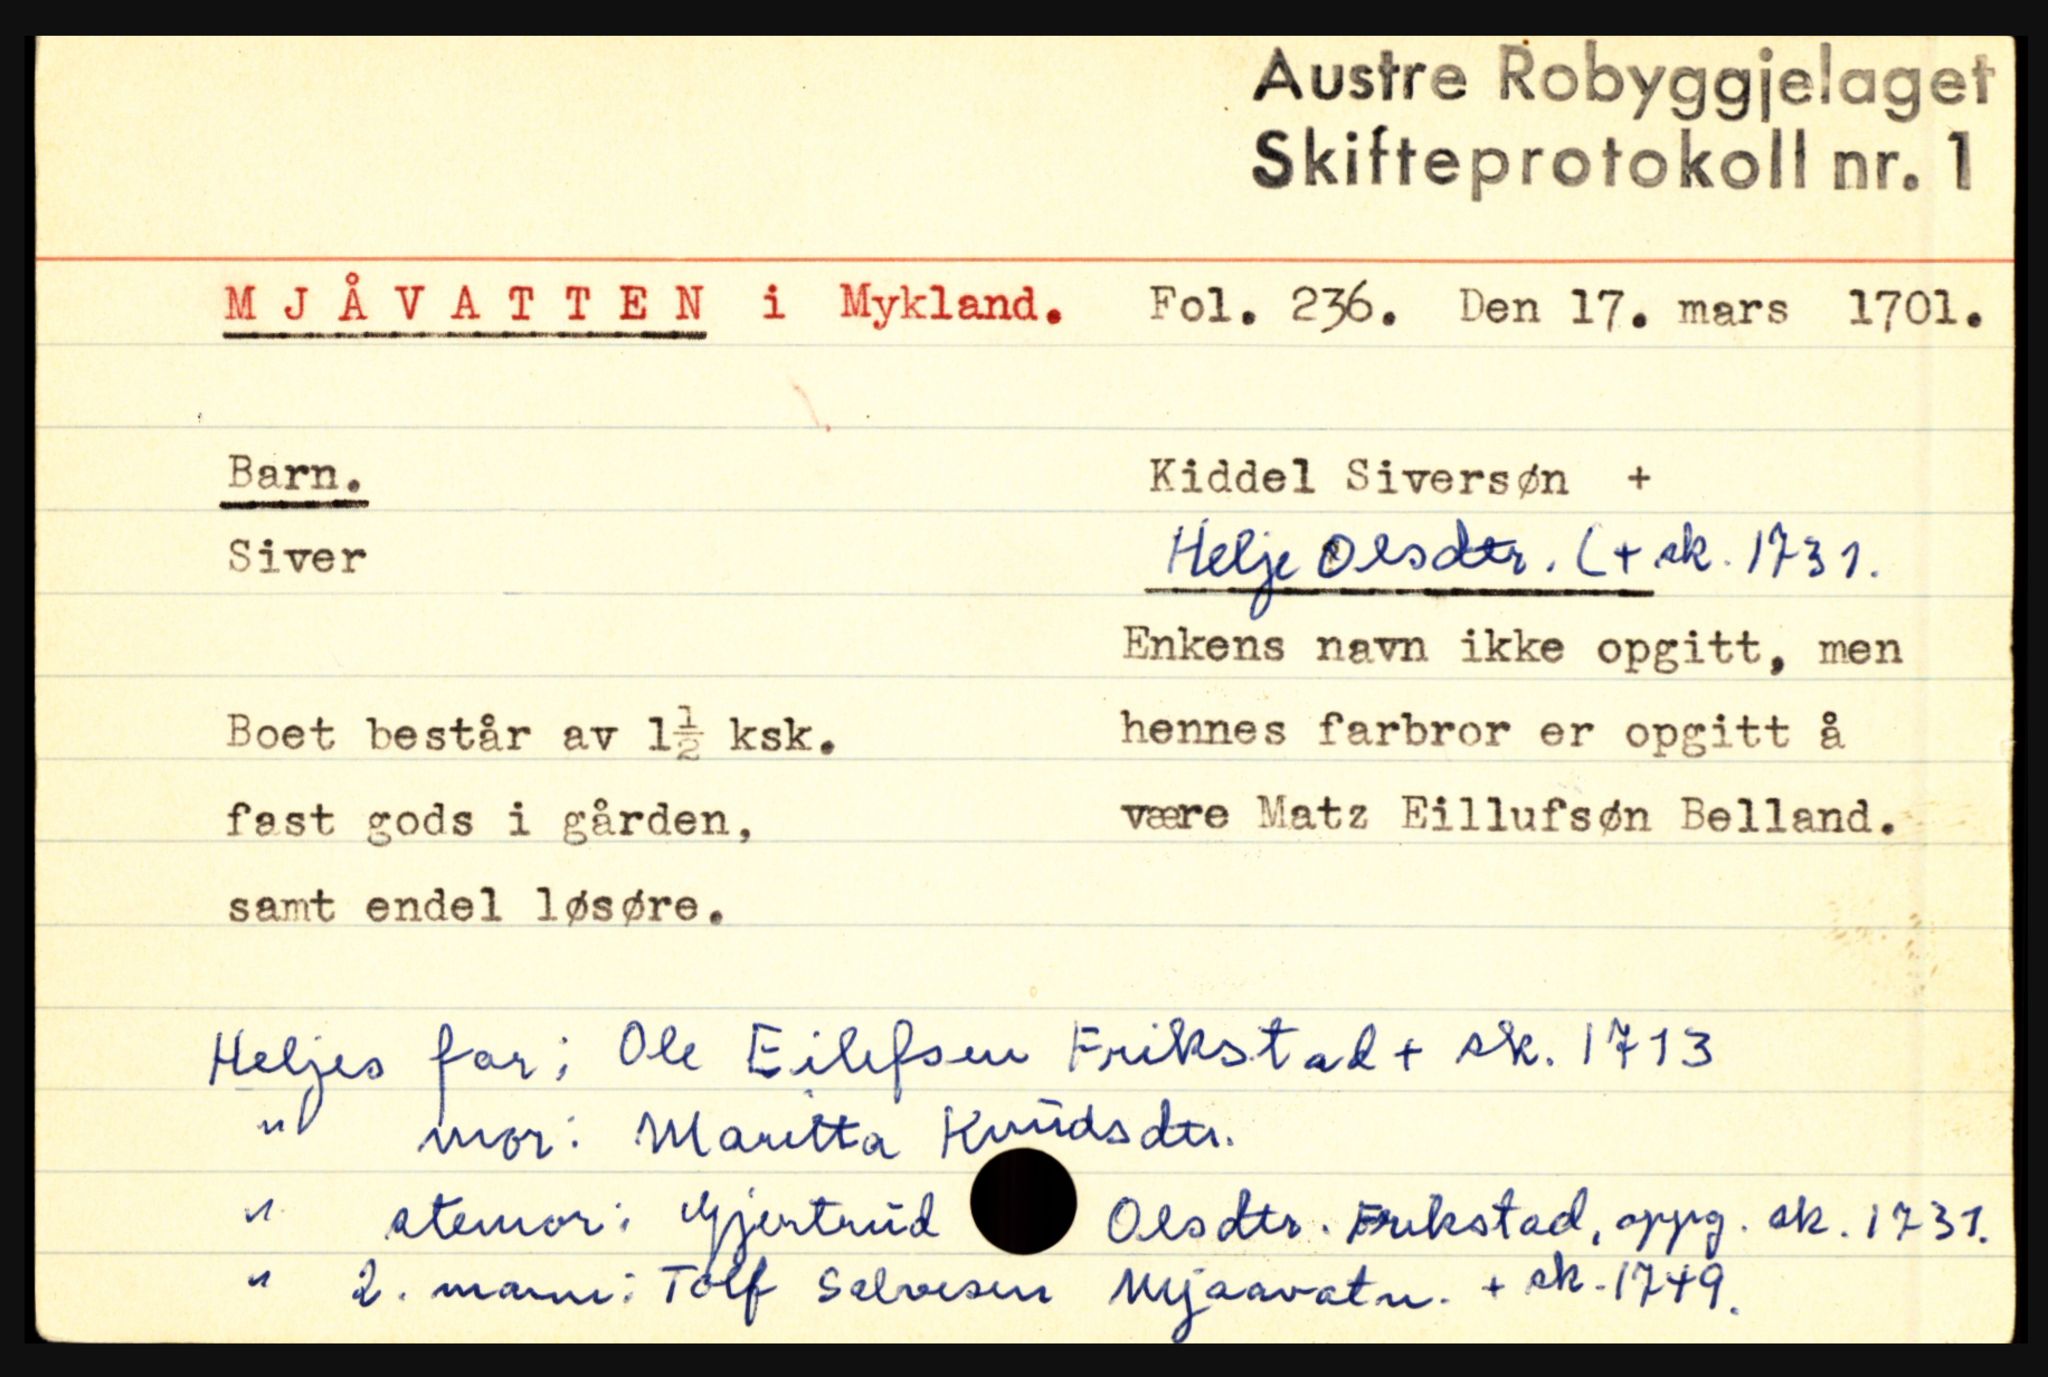 Austre Robyggjelaget
Skifteprotokoll nr. 1
MJÅVATTEN i Mykland. Fol. 236. Den 17. mars 1701.
Barn. Kiddel Siversøn +
Siver Helje Olsdtr. (+ sk. 1731.
Enkens navn ikke opgitt, men
Boet består av 1½ ksk. hennes farbror er opgitt å
fast gods i gården, være Matz Eillufsøn Belland.
samt endel løsøre.
Heljes far; Ole Eilefsen Erikstad + sk. 1713
" mor: Maritta Knudsdtr.
" stemor: Gjertrud Olsdtr. Erikstad, oppg. sk. 1731.
" 2. mann: Tolf Salvesen Mjaavatn. + sk. 1749.